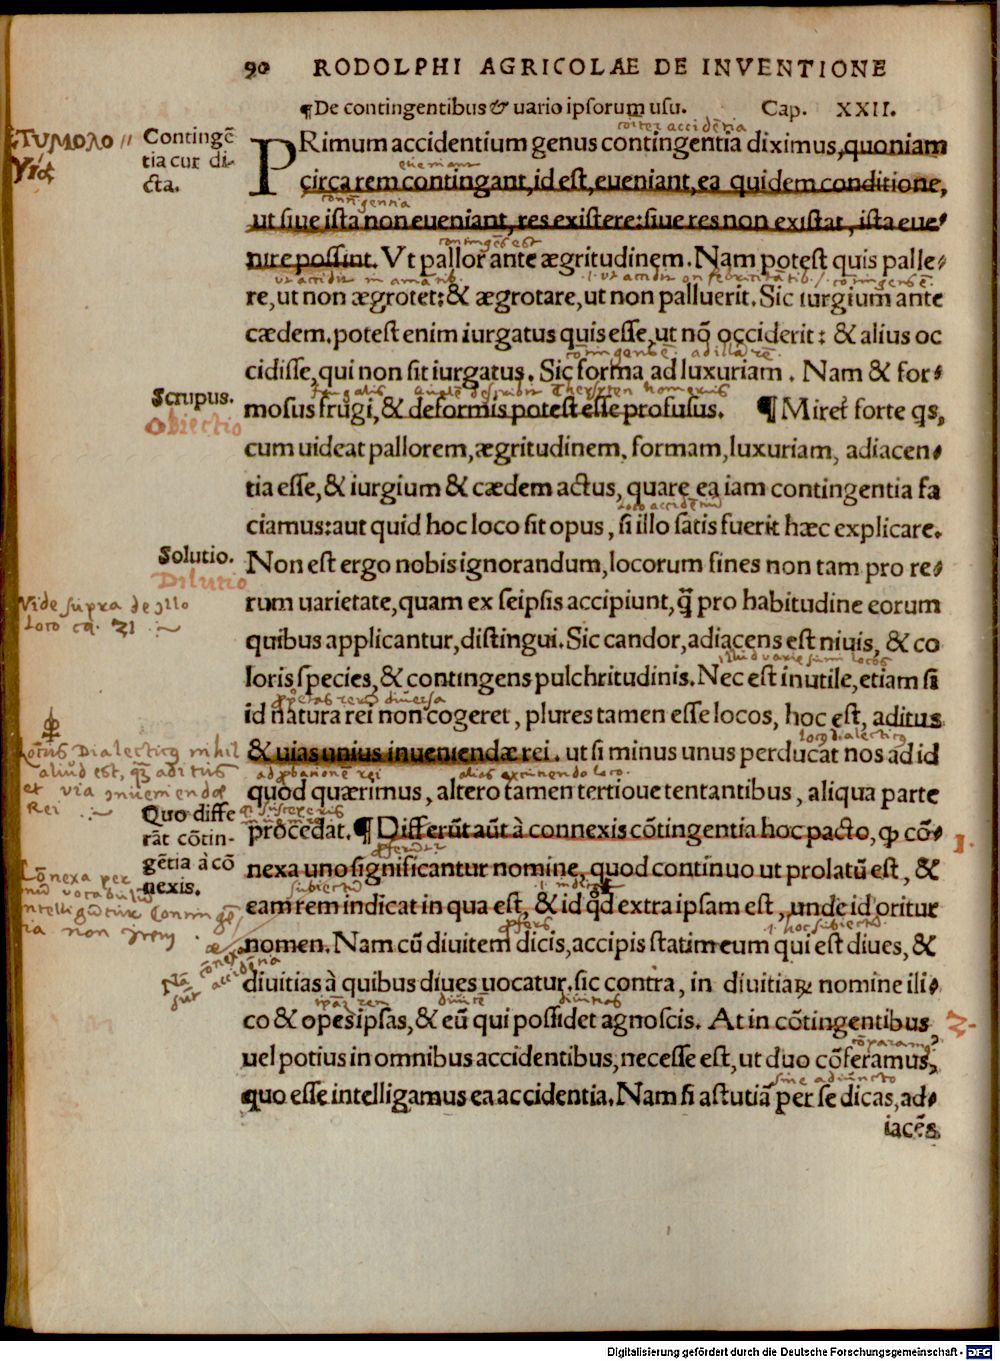 90 RODOLPHI AGRICOLAE DE INVENTIONE
¶De contingentibus & uario ipsorum usu. Cap. XXII.
ΕΤΥΜΟΛΟ
Contingē
tia cur di-
cta.
PRimum accidentium genus contingentia diximus, quoniam
circa rem contingant, id est, eueniant, ea quidem conditione,
ut siue ista non eueniant, res existere: siue res non existat, ista eue-
nire possint. Vt pallor ante ægritudinem. Nam potest quis palle-
re, ut non ægrotet: & ægrotare, ut non palluerit. Sic iurgium ante
cædem. potest enim iurgatus quis esse, ut nō occiderit: & alius oc
cidisse, qui non sit iurgatus. Sic forma ad luxuriam. Nam & for-
Scrupus.
Obiectio
mosus frugi, & deformis potest esse profusus. ¶ Miret̃ forte qs,
cum uideat pallorem, ægritudinem, formam, luxuriam, adiacen-
tia esse, & iurgium & cædem actus, quare ea iam contingentia fa
ciamus: aut quid hoc loco sit opus, si illo satis fuerit hæc explicare.
Solutio.
Dilutio
Non est ergo nobis ignorandum, locorum fines non tam pro re-
Vide supra de illo
loco ca. 21
rum uarietate, quam ex seipsis accipiunt, q̃ pro habitudine eorum
quibus applicantur, distingui. Sic candor, adiacens est niuis, & co
loris species, & contingens pulchritudinis. Nec est inutile, etiam si
id natura rei non cogeret, plures tamen esse locos, hoc est, aditus
Locus Dialecticq nihil
aliud est, qz aditus
et via inueniendæ
Rei
& uias unius inueniendæ rei. ut si minus unus perducat nos ad id
quod quærimus, altero tamen tertioue tentantibus, aliqua parte
Quo diffe
rāt cōtin-
gētia à cō
nexis.
procedat. ¶ Differūt aūt à connexis cōtingentia hoc pacto, ꝙ cō-
1.
nexa uno significantur nomine, quod continuo ut prolatū est, &
eam rem indicat in qua est, & id qd̃ extra ipsam est, unde id oritur
nomen. Nam cū diuitem dicis, accipis statim eum qui est diues, &
diuitias à quibus diues uocatur. sic contra, in diuitiaꝝ nomine ili-
co & opes ipsas, & eū qui possidet agnoscis. At in cōtingentibus
2.
uel potius in omnibus accidentibus, necesse est, ut duo cōferamus,
quo esse intelligamus ea accidentia. Nam si astutiā per se dicas, ad-
iacēs
Digitalisierung gefördert durch die Deutsche Forschungsgemeinschaft - DFG